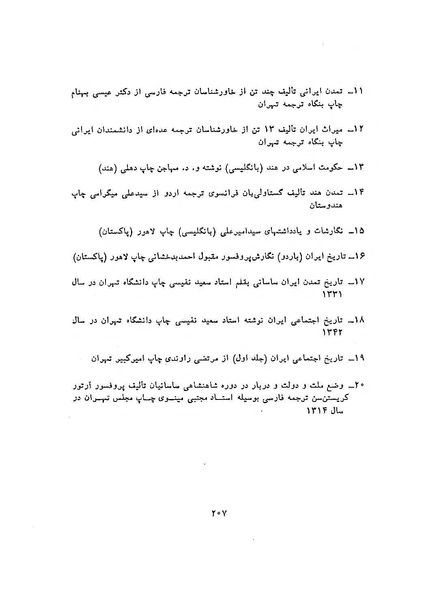 ۱۱ـ تمدن ایرانی تألیف چند تن از خاورشناسان ترجمه فارسی از دکتر عیسی بهنام
چاپ بنگاه ترجمه تهران
۱۲ـ میراث ایران تألیف ۱۳ تن از خاورشناسان ترجمه عده‌ای از دانشمندان ایرانی
چاپ بنگاه ترجمه تهران
۱۳ـ حکومت اسلامی در هند (بانگلیسی) نوشته و. د. مهاجن چاپ دهلی (هند)
۱۴ـ تمدن هند تألیف گستاولی‌بان فرانسوی ترجمه اردو از سیدعلی میگرامی چاپ
هندوستان
۱۵ـ نگارشات و یادداشتهای سیدامیرعلی (بانگلیسی) چاپ لاهور (پاکستان)
۱۶ـ تاریخ ایران (باردو) نگارش‌پروفسور مقبول احمدبدخشانی چاپ لاهور (پاکستان)
۱۷ـ تاریخ تمدن ایران ساسانی بقلم استاد سعید نفیسی چاپ دانشگاه تهران در سال
۱۳۳۱
۱۸ـ تاریخ اجتماعی ایران نوشته استاد سعید نفیسی چاپ دانشگاه تهران در سال
۱۳۴۲
۱۹ـ تاریخ اجتماعی ایران (جلد اول) از مرتضی راوندی چاپ امیرکبیر تهران
۲۰ـ وضع ملت و دولت و دربار در دوره شاهنشاهی ساسانیان تألیف پروفسور آرتور
کریستن‌سن ترجمه فارسی بوسیله استاد مجتبی مینوی چاپ مجلس تهران در
سال ۱۳۱۴
۲۰۷